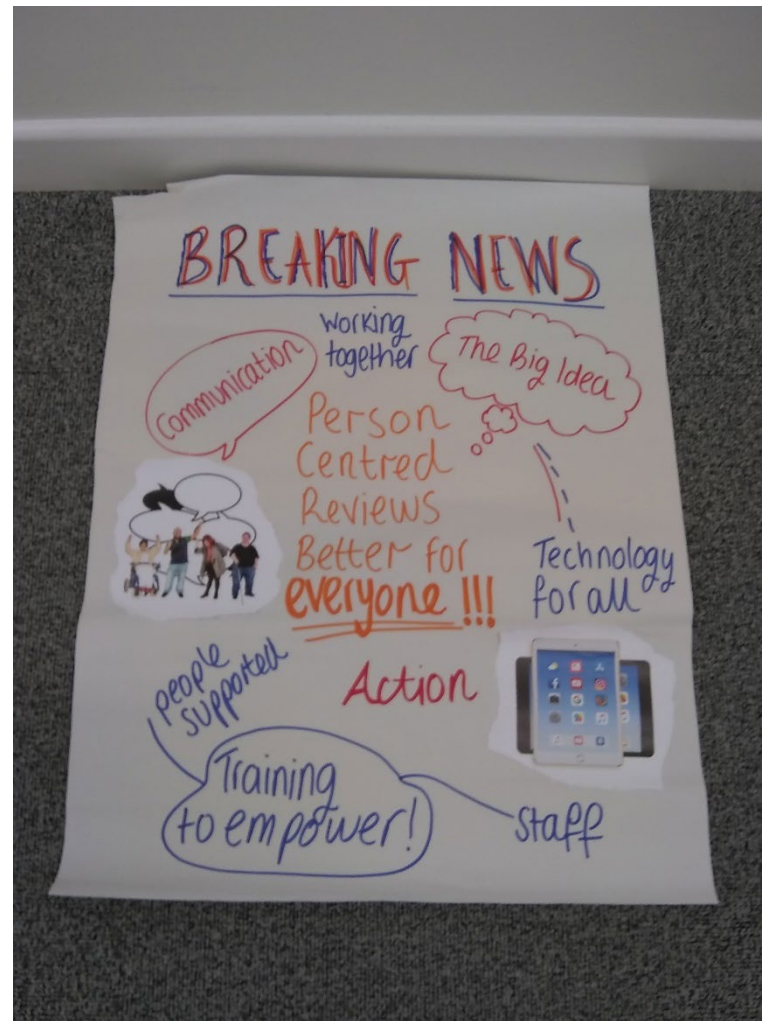 BREAKING NEWS
Working
together
Communication
The Big Idea
Person
Centred
Reviews
Better for
everyone !!!
Technology
for all
people
supported
Action
Training
to empower!
staff